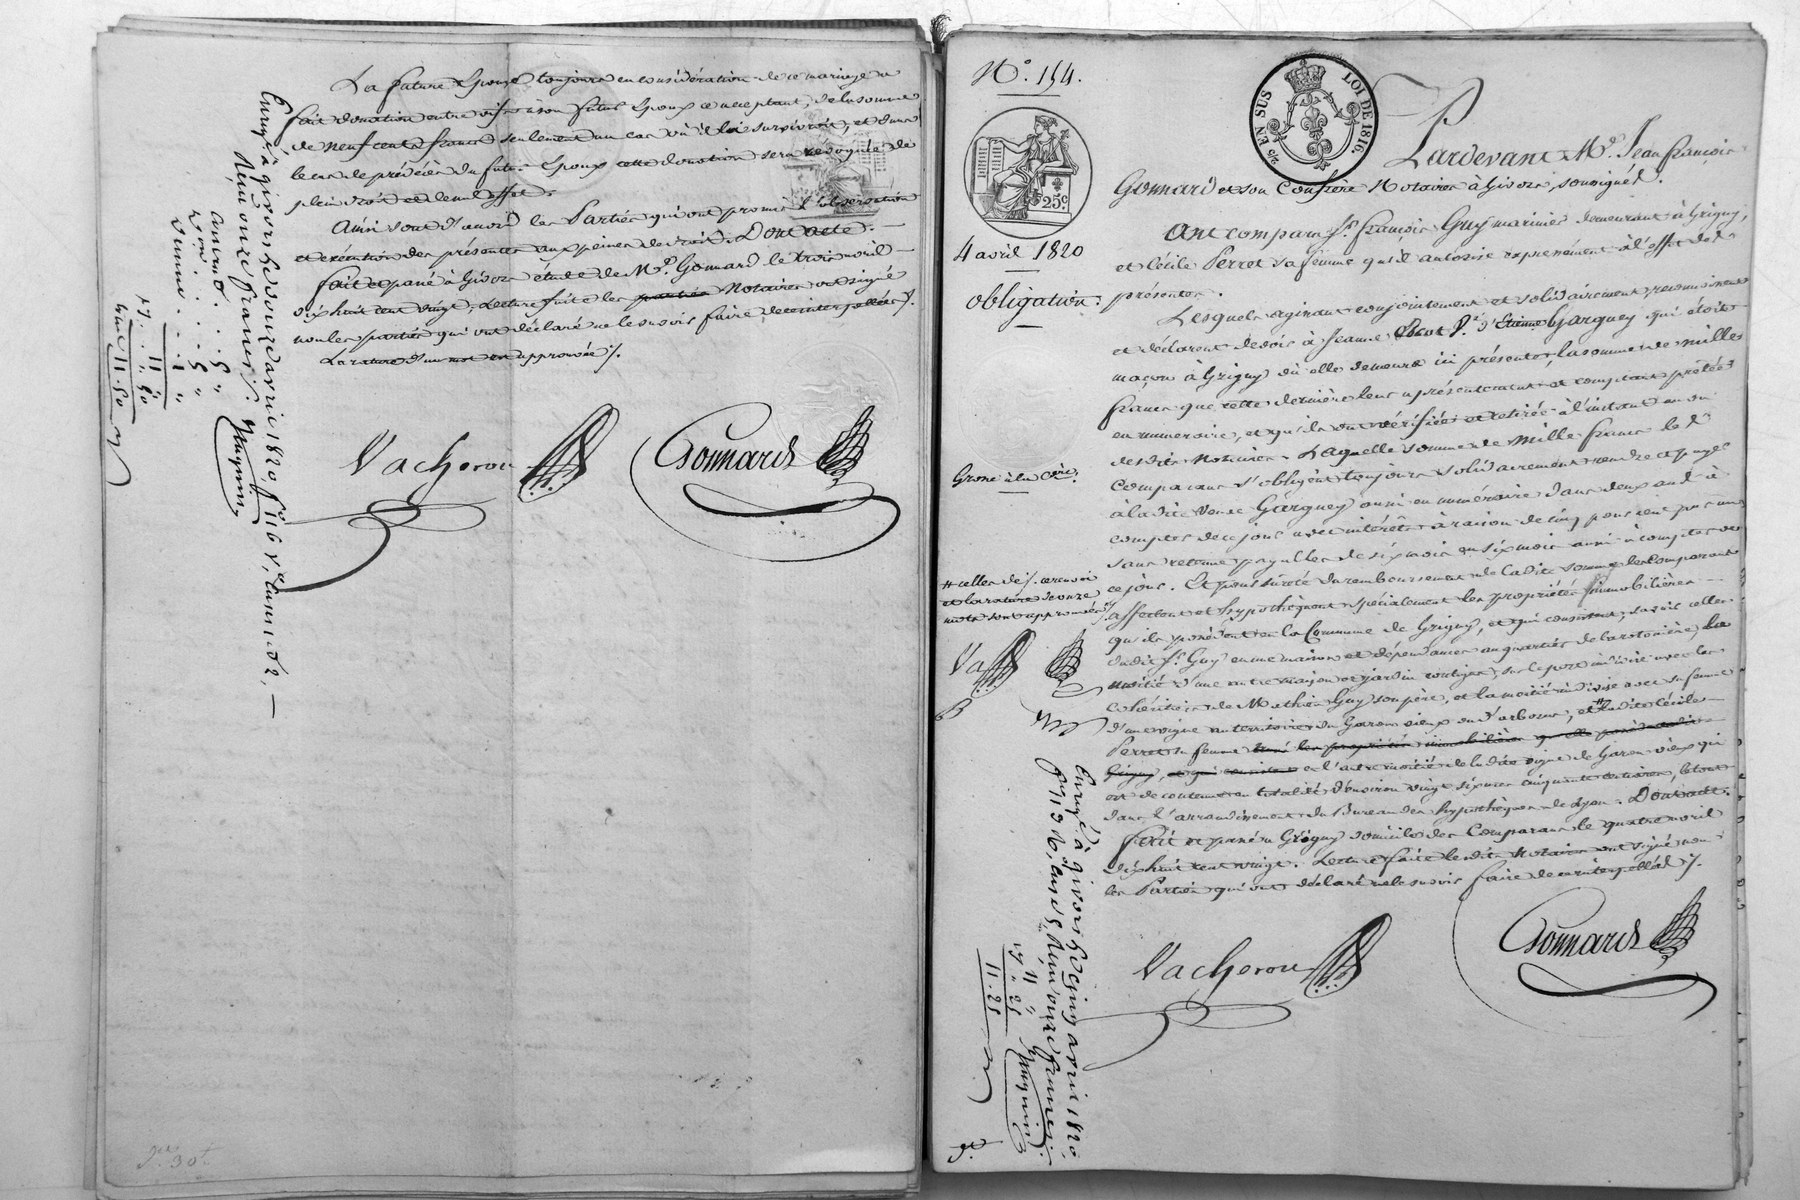 La future Epouse toujours en considération de ce mariage a
fait donation entre vifs à son futur Epoux ce acceptant, de la somme
de neuf cents francs seulement au cas où il lui survivroit, et dans
le cas de prédécès du futur Epoux cette donation sera révoquée de
plein droit et de nul effet.
Ainsi sont d'accord les Parties qui ont promis l'observation
et exécution des présentes aux peines de droit. Dont acte. —
fait et passé à Givors étude de Me. Gonnard le trois avril —
dix huit cent vingt, Lecture faite les parties Notaires ont signé
non les parties qui ont déclaré ne le savoir faire, de ce interpellées ./.
La rature d'un mot est approuvée ./.
Vacheron
Gonnard
Enregé. à givors le douze avril 1820, fo. 116
Reçu onze francs
11 . "
1 . 10
N°. 154.
25 EN SUS
LOI DE 1816.
25c.
4 avril 1820
obligation.
Pardevant Me. Jean François
Gonnard et son Confrère Notaires à Givors, soussignés.
Ont comparu Sr. françois Guy marinier demeurant à Grigny,
et Cécile Perret sa femme qu'il autorise expressément à l'effet des
présentes.
Lesquels agissant conjointement et solidairement reconnoissent
et déclarent devoir à Jeanne Ve. d'Etienne Garguey qui étoit
maçon à Grigny où elle demeure ici présente, la somme de mille
francs que cette dernière leur a présentement et comptant prêtée
en numéraire, et qu'ils ont vérifiée et retirée à l'instant au vu
desdits Notaires. Laquelle somme de mille francs les d.
Comparans s'obligent toujours solidairement rendre et payer
à ladite veuve Garguey aussi en numéraire dans deux ans à
compter de ce jour avec intérêts à raison de cinq pour cent par an
sans retenue payables de six mois en six mois aussi à compter de
ce jour. Et pour sûreté du remboursement de ladite somme les Comparans
affectent et hypothèquent spécialement les propriétés immobilières —
qu'ils possèdent en la Commune de Grigny, et qui consistent, savoir celles
dudit Sr. Guy en une maison et dépendances au quartier de la rotonière, la
moitié d'une autre maison et jardin contigus, sur le port indivis avec les
cohéritiers de Mathieu Guy son père, et la moitié indivise avec sa femme
d'une vigne au territoire du Garon vieux ou d'arboras, et # ladite Cécile —
Perret sa femme tous les propriétés immobilières qu'elle possède audit
Grigny, et qui consistent en l'autre moitié de ladite vigne de Garon vieux qui
est de contenue en totalité d'environ vingt six ares cinquante centiares, le tout
dans l'arrondissement du Bureau des hypothèques de Lyon. Dont acte.
fait et passé à Grigny domicile des Comparans le quatre avril
dix huit cent vingt. Lecture faite lesdits Notaires ont signé non
les Parties qui ont déclaré ne le savoir faire de ce interpellées ./.
Vacheron
Gonnard
# celles de ./. ce renvoi
et la rature de onze
mots sont approuvés ./.
Va
Enregé. à givors le
avril 1820
Reçu onze francs
11 . 25